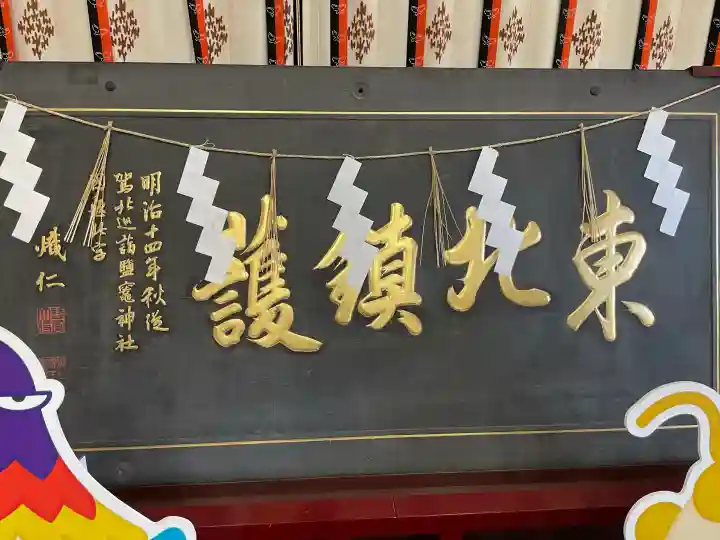 東北鎮護
明治十四年秋從
駕北巡詣鹽竈神社
熾仁